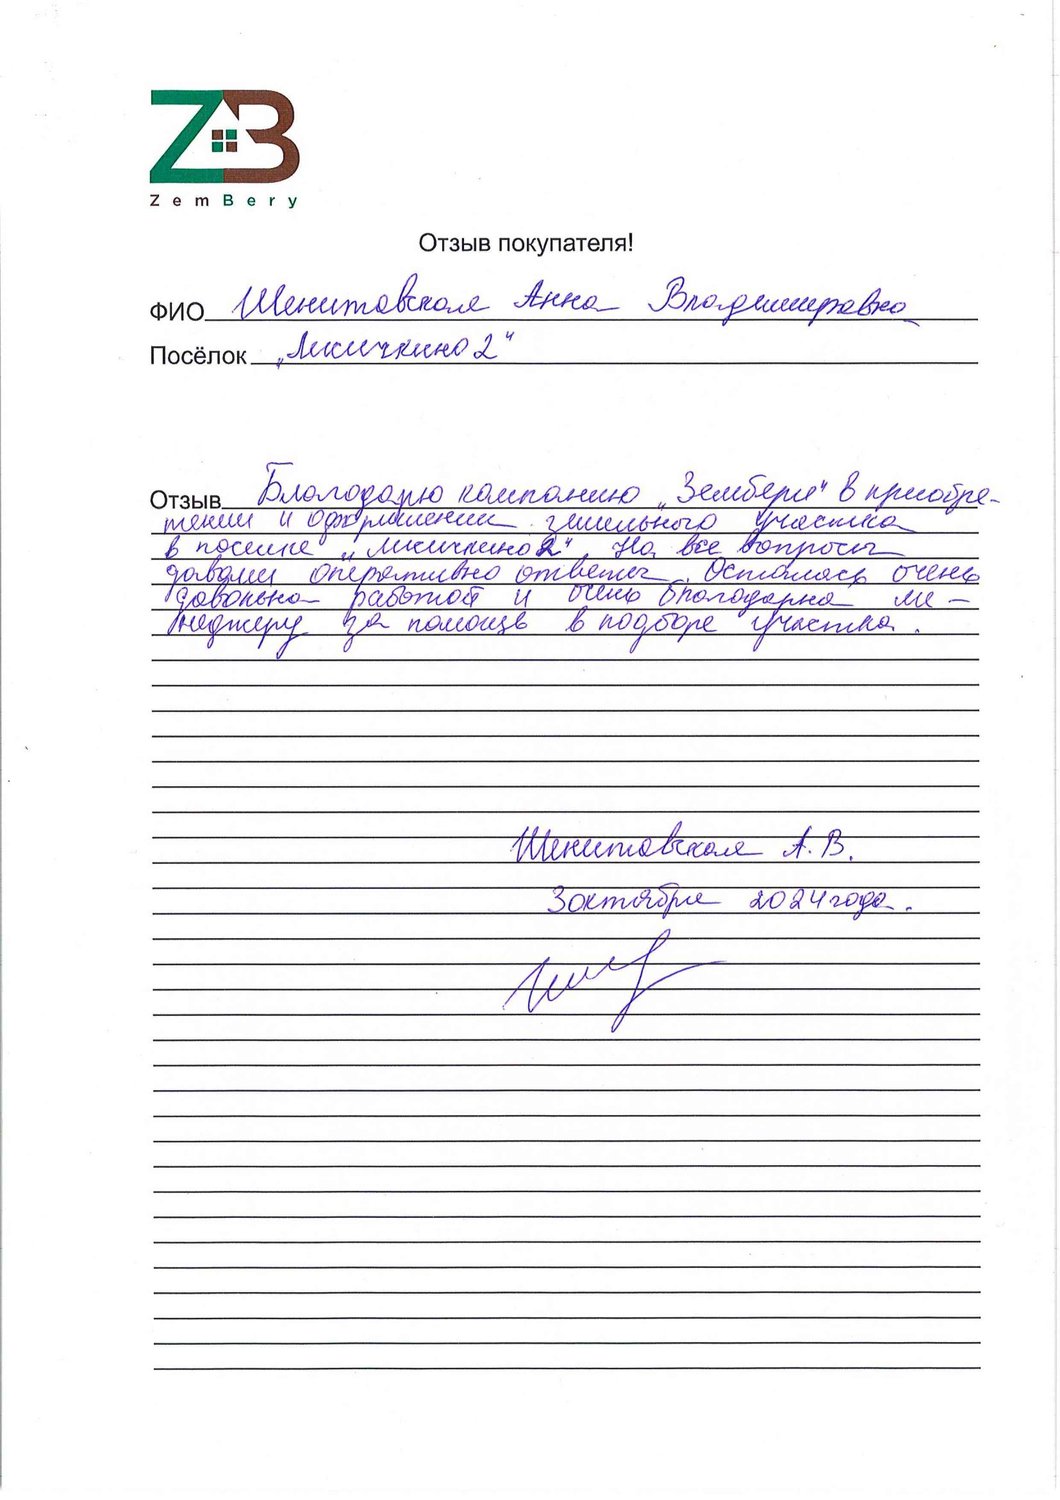 ZB
ZemBery
Отзыв покупателя!
ФИО Шенитовская Анна Владимировна
Посёлок „Лисичкино 2"
Отзыв Благодарю компанию „Зембери" в приобре-
тении и оформлении земельного участка
в поселке „Лисичкино 2". На все вопросы
давали оперативно ответы. Осталась очень
довольна работой и очень благодарна ме-
неджеру за помощь в подборе участка.
Шенитовская А. В.
3 октября 2024 года.